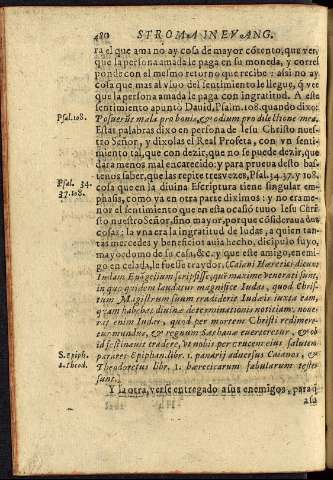 480 STROMA IN EVANG.
ra el que ama no ay cosa de mayor cõtento, que ver,
que la persona amada le paga en su moneda, y corres
ponde con el mesmo retorno que recibe: assi no ay
cosa que mas al viuo del sentimiento le llegue, q̃ ver
que la persona amada le paga con ingratitud. A este
sentimiento apuntò Dauid, Psalm. 108. quando dixo:
Psal. 108. Posuerũt mala pro bonis, & odium pro dilectione mea.
Estas palabras dixo en persona de Iesu Christo nues-
tro Señor, y dixolas el Real Profeta, con vn senti-
miento tal, que con dezir, que no se puede dezir, que
dara menos mal encarecido, y para prueua desto bas-
Psal. 34. tenos saber, que las repite tres vezes, Psal. 34. 37. y 108.
37. 108. cosa que en la diuina Escriptura tiene singular em-
phasis, como ya en otra parte diximos: y no era me-
nor el sentimiento que en esta ocasiõ tuuo Iesu Chri
sto nuestro Señor, sino mayor, porque cõsideraua dos
cosas: la vna era la ingratitud de Iudas, a quien tan-
tas mercedes y beneficios auia hecho, dicipulo suyo,
mayordomo de su casa, &c. y que este amigo, enemi-
go en celada, le fuesse traydor. (Caiani Hæretici dicunt
Iudam Euãgelium scripsisse, quê maxime venerati sunt,
in quo quidem laudatur magnifice Iudas, quod Chris-
tum Magistrum suum tradiderit Iudæis iuxta eam,
quam habebat diuinæ determinationis notitiam: noue-
rat enim Iudas, quod per mortem Christi redimere-
tur mundus, & regnum Sathanæ euerteretur, & ob
id festinauit tradere, vt nobis per crucem eius salutem
S. Epiph. pararet Epiphan. libr. 1. panarij aduersus Caianos, &
S. Theod. Theodoretus libr. 1. hæreticarum fabularum testes
sunt.)
Y la otra, verse entregado a sus enemigos, para q̃
a su